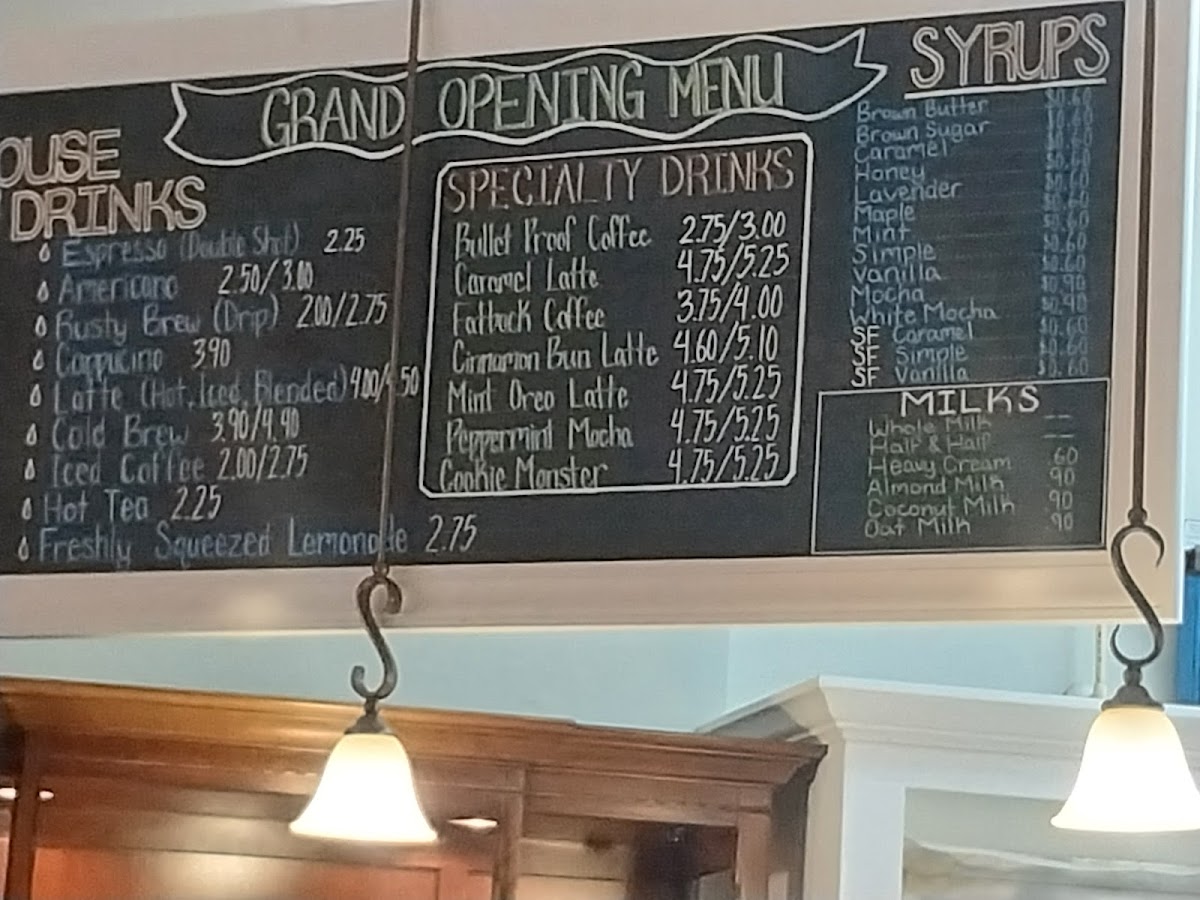 GRAND OPENING MENU
OUSE
DRINKS
Espresso (Double Shot) 2.25
Americano 2.50/3.00
Rusty Brew (Drip) 2.00/2.75
Cappucino 3.90
Latte (Hot, Iced, Blended) 4.00/4.50
Cold Brew 3.90/4.90
Iced Coffee 2.00/2.75
Hot Tea 2.25
Freshly Squeezed Lemonade 2.75
SPECIALTY DRINKS
Bullet Proof Coffee 2.75/3.00
Caramel Latte 4.75/5.25
Fatback Coffee 3.75/4.00
Cinnamon Bun Latte 4.60/5.10
Mint Oreo Latte 4.75/5.25
Peppermint Mocha 4.75/5.25
Cookie Monster 4.75/5.25
SYRUPS
Brown Butter $0.60
Brown Sugar $0.60
Caramel $0.60
Honey $0.60
Lavender $0.60
Maple $0.60
Mint $0.60
Simple $0.60
Vanilla $0.60
Mocha $0.90
White Mocha $0.90
SF Caramel $0.60
SF Simple $0.60
SF Vanilla $0.60
MILKS
Whole Milk --
Half & Half --
Heavy Cream .60
Almond Milk .90
Coconut Milk .90
Oat Milk .90